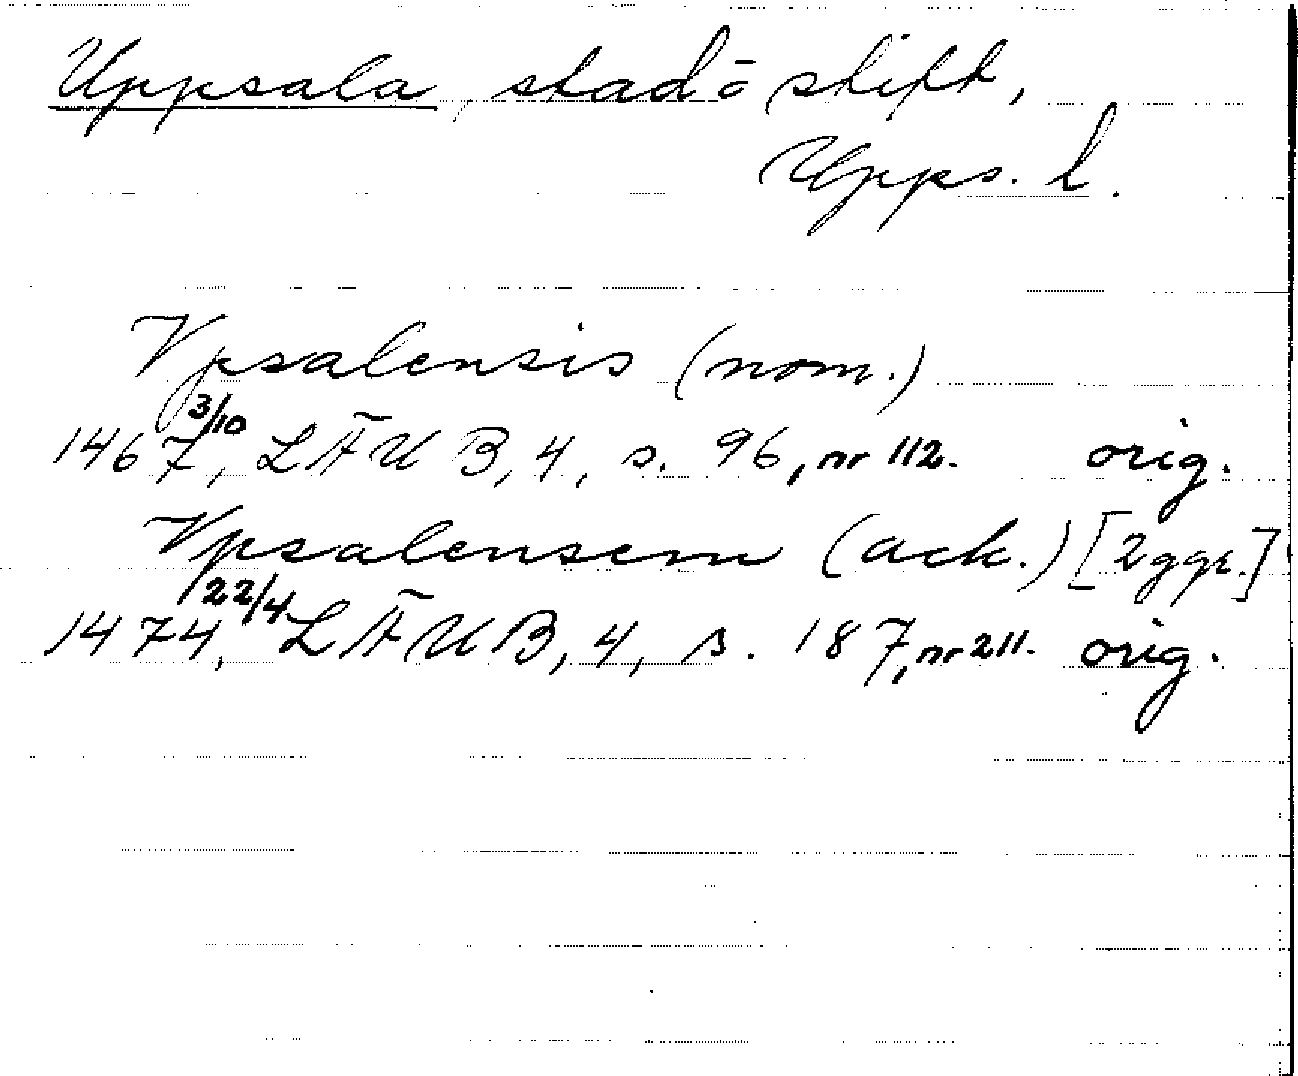 Uppsala, stad o stift,
Upps. l.
Vpsalensis (nom.)
1467 3/10, LÄUB, 4, s. 96, nr 112. orig.
Vpsalensem (ack.) [2 ggr.]
1474, 22/4 LÄUB, 4, s. 187, nr 211. orig.